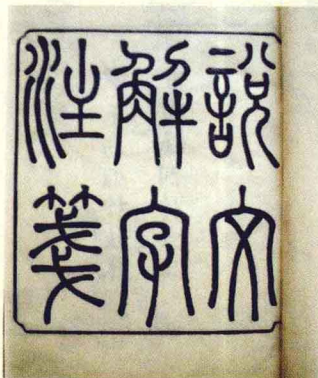 說文
解字
注箋